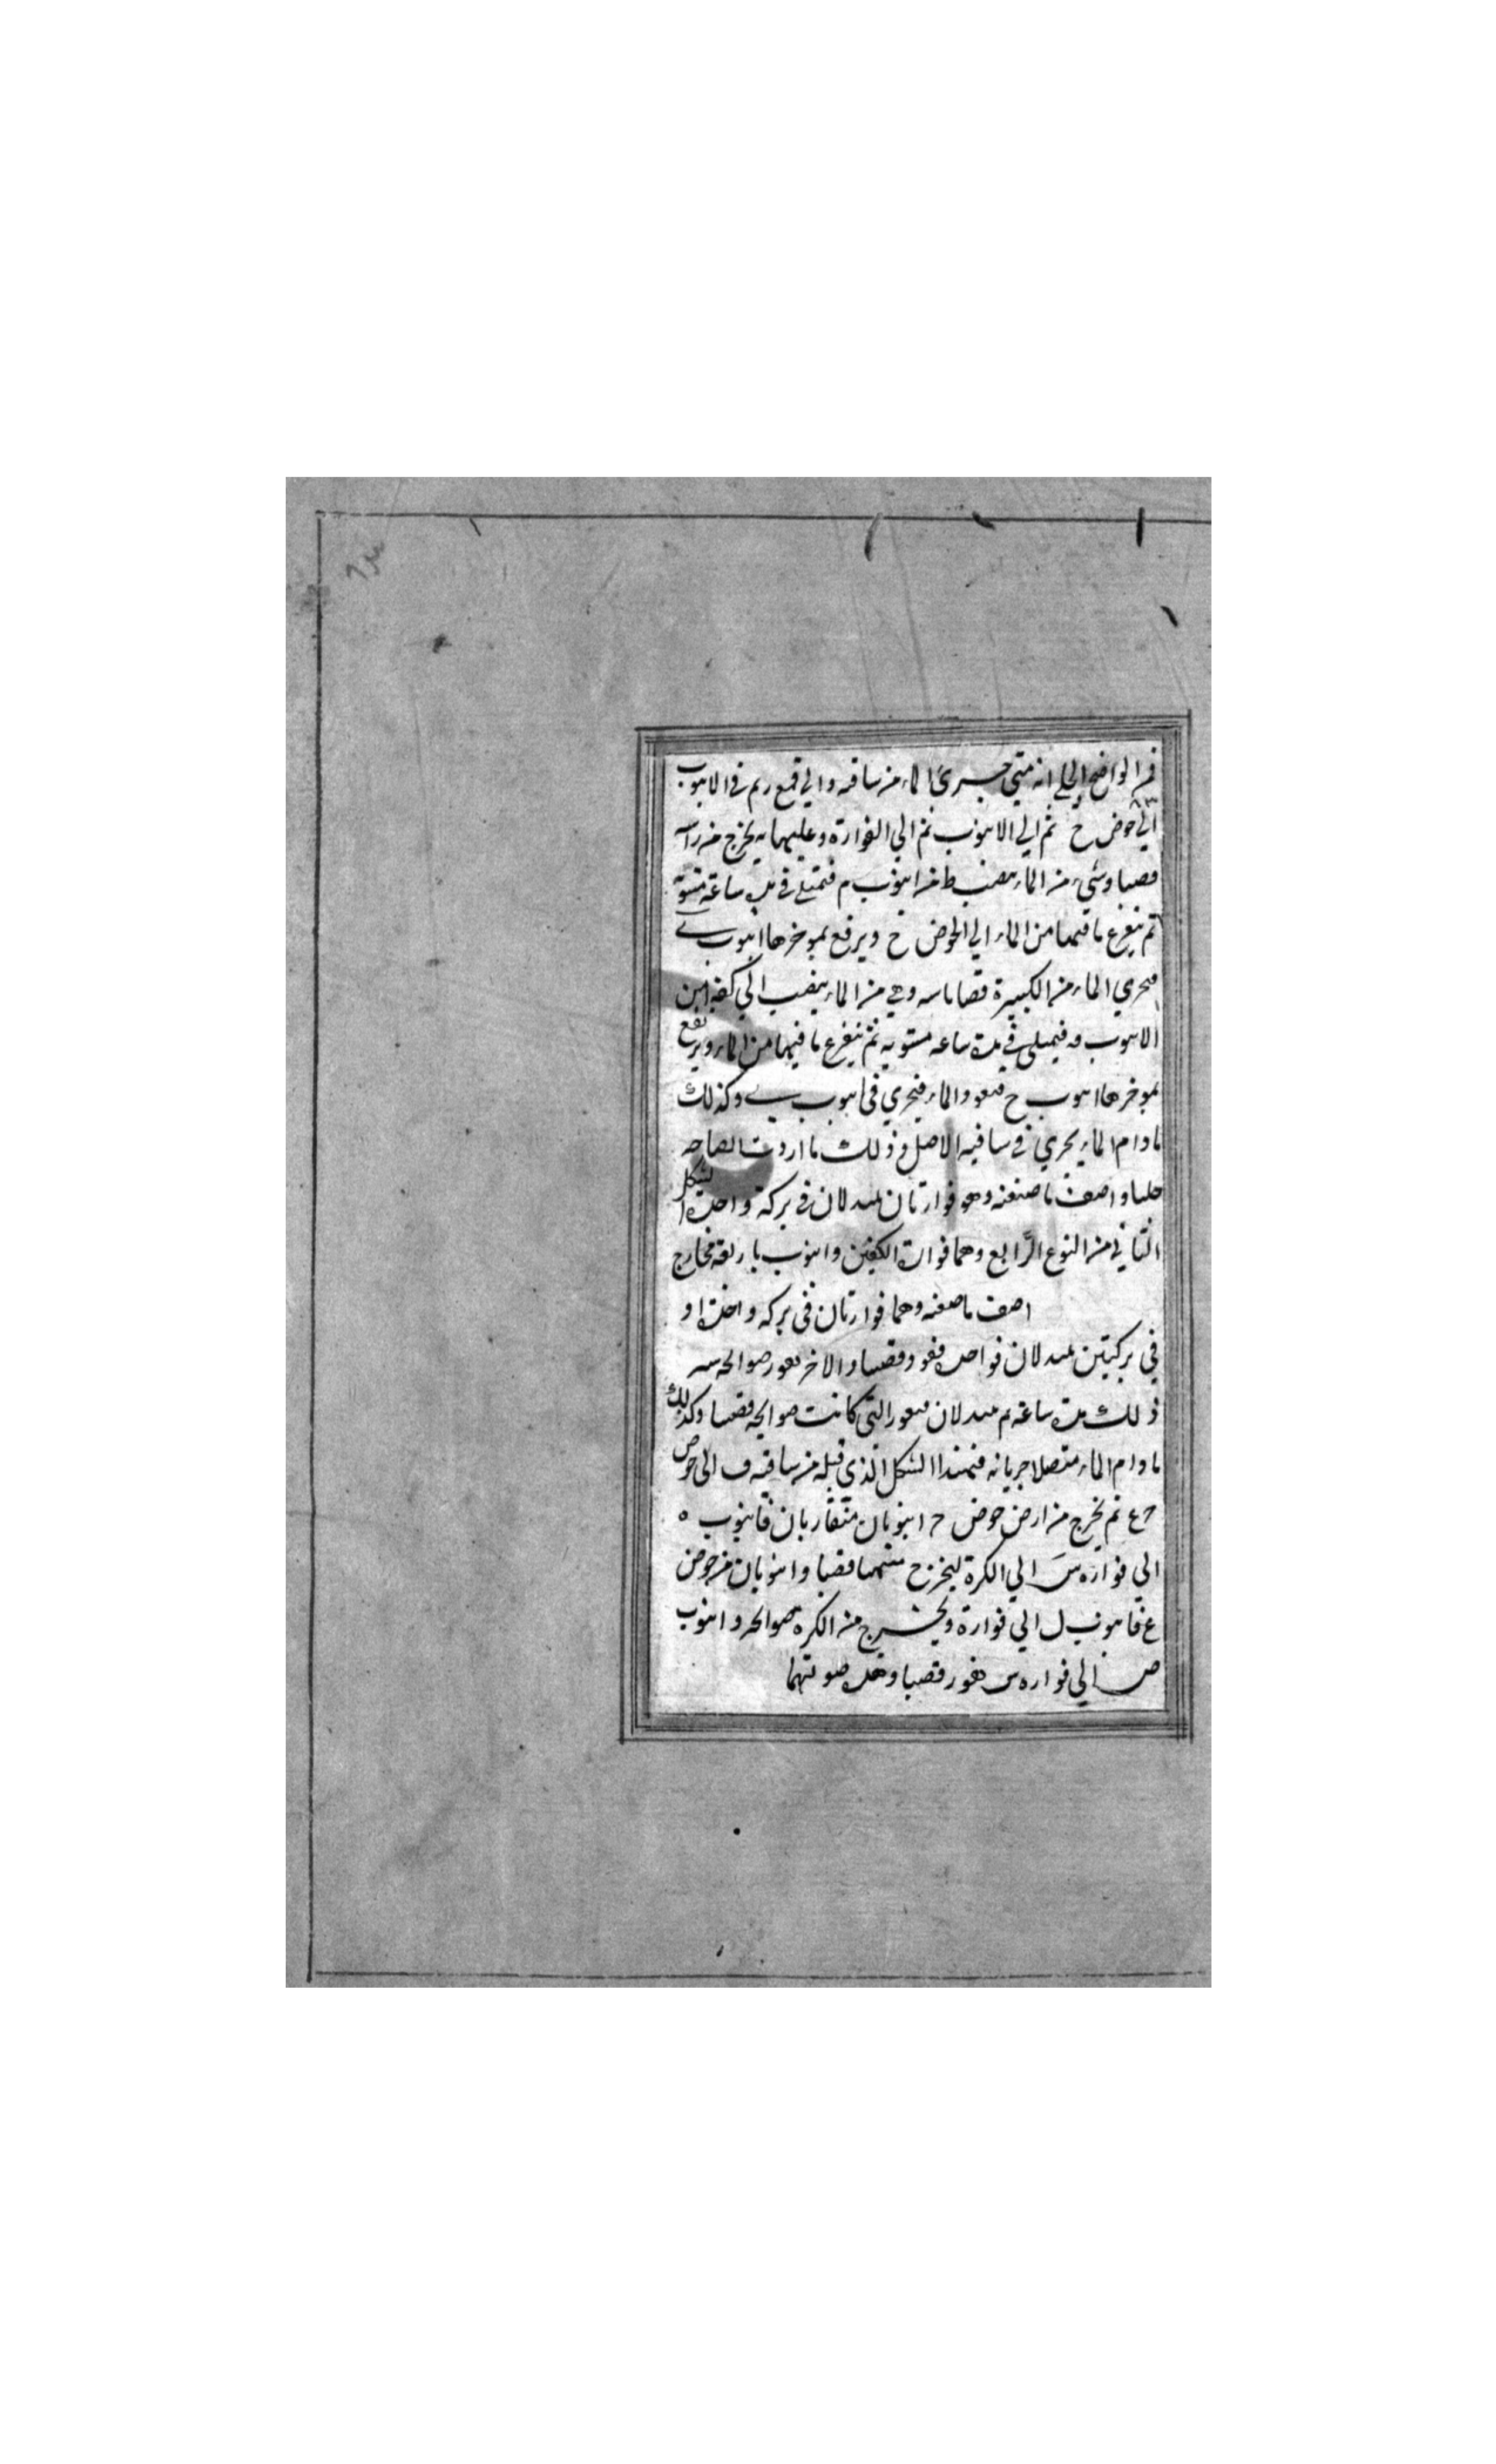 فمن الواضح الجلي انه متى جري الماء من ساقية و الي قمع ر م في الانبوب
الي حوض خ ثم الي الانبوب ثم الي الفوارة و عليهما يه يخرج من راسه
قصبا وشيء من الماء ينصب ط من انبوب م فتمتلي في مدة ساعة مستوية
ثم يتفرغ ما فيها من الماء الي الحوض خ ويرفع بموخرها انبوب ي
فيجري الماء من الكبيرة قصبا سه وهي من الماء ينصب الي كفة من
الانبوب فيمتلي في مدة ساعه مستويه ثم يتفرغ ما فيها من الماء ويرفع
بموخرها انبوب ح فيعود الماء فيجري في انبوب ي وكذلك
ما دام الماء يجري في ساقية الاصل وذلك ما اردت ايضاحه
جليا واصف ما صنعته وهو فوارتان يبدلان في بركة واحدة الشكل
الثاني من النوع الرابع وهما فوارة الكفتين وانبوب باربعة مخارج
اصف ما صنعته وهما فوارتان في بركه واحدة او
في بركتين يبدلان فواحدة تفور قصبا والاخر تفور صوالجه
ذلك مدة ساعة ثم يبدلان فيفور التي كانت صوالجه قصبا وكذلك
ما دام الماء متصلا جريانه فيمتد الشكل الذي قبله من ساقية ف الي حوض
ح ع ثم يخرج من ارض حوض ح انبوبان متقاربان فانبوب ه
الي فواره س الي الكرة ليخرج منهما قصبا وانبوبان من حوض
ع فانبوب ل الي فوارة ويخرج من الكره صوالجه وانبوب
ص الي فواره س تفور قصبا وهذه صورتهما